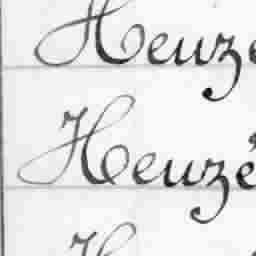 Heuzé
Heuzé